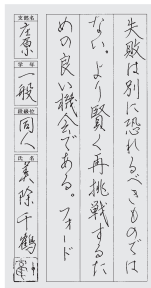 失敗は別に恐れるべきものでは
ない。より賢く再挑戦するた
めの良い機会である。フォード
支部名
庄原
学年
一般
段級位
同人
氏名
兼除千鶴